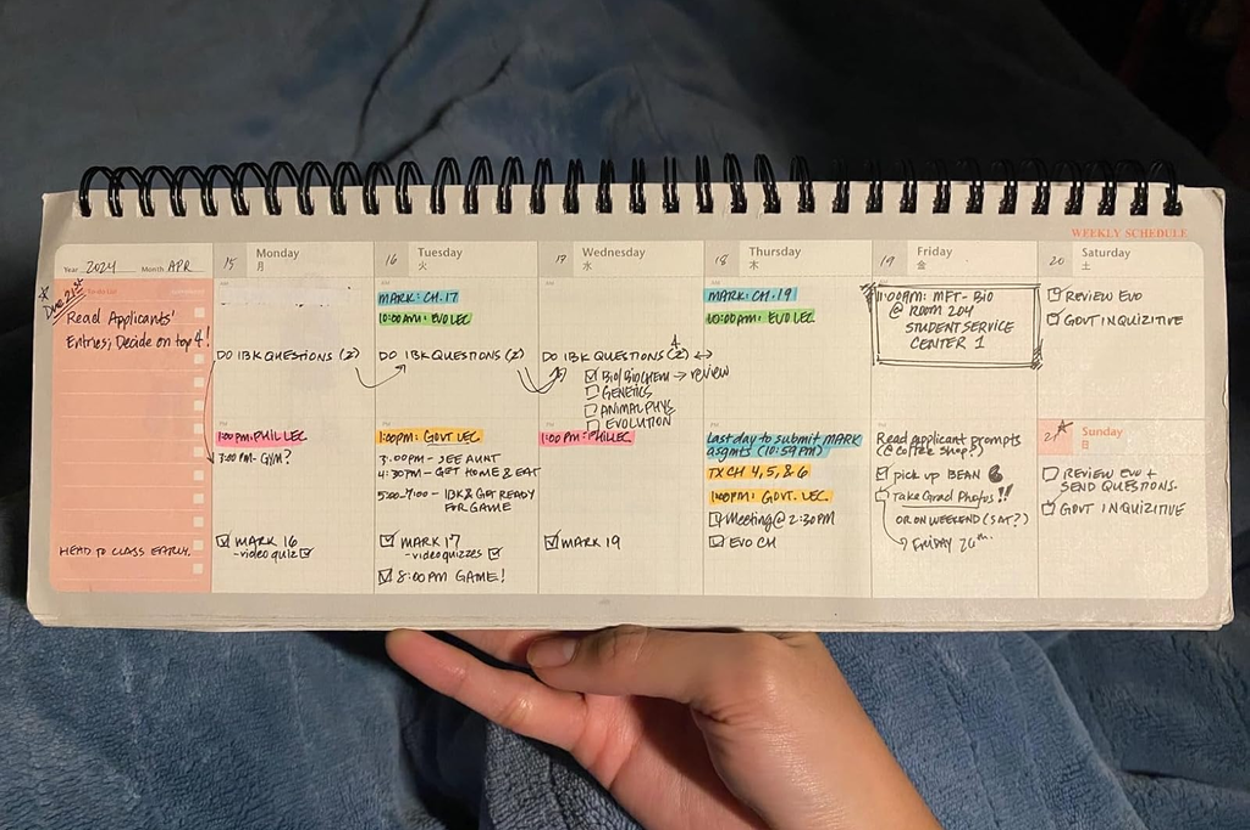 WEEKLY SCHEDULE
Year 2024 Month APR
Due 21st
Read Applicants'
Entries; Decide on top 4!
HEAD TO CLASS EARLY.
15 Monday
月
DO IBK QUESTIONS (2)
1:00 PM: PHIL LEC
3:00 PM- GYM?
MARK 16
-video quiz
16 Tuesday
火
MARK: CH. 17
10:00 AM: EVO LEC
DO IBK QUESTIONS (2)
1:00PM: GOVT LEC
3:00PM - SEE AUNT
4:30PM - GET HOME & EAT
5:00-7:00 - IBK & GET READY
FOR GAME
MARK 17
-video quizzes
8:00 PM GAME!
17 Wednesday
水
4
DO IBK QUESTIONS (2) ↔
BIO/BIOCHEM → review
GENETICS
ANIMAL PHYS
EVOLUTION
1:00 PM: PHIL LEC
MARK 19
18 Thursday
木
MARK: CH. 19
10:00AM: EVO LEC
Last day to submit MARK
asgmts (10:59 PM)
TX CH 4, 5, & 6
1:00PM: GOVT. LEC
Meeting @ 2:30PM
EVO CH
19 Friday
金
11:00AM: MFT - BIO
@ ROOM 204
STUDENT SERVICE
CENTER 1
Read applicant prompts
(@ coffee shop?)
pick up BEAN
Take Grad Photos!!
OR ON WEEKEND (SAT?)
→ FRIDAY 26th.
20 Saturday
土
REVIEW EVO
GOVT INQUIZITIVE
21 Sunday
日
REVIEW EVO +
SEND QUESTIONS.
GOVT INQUIZITIVE